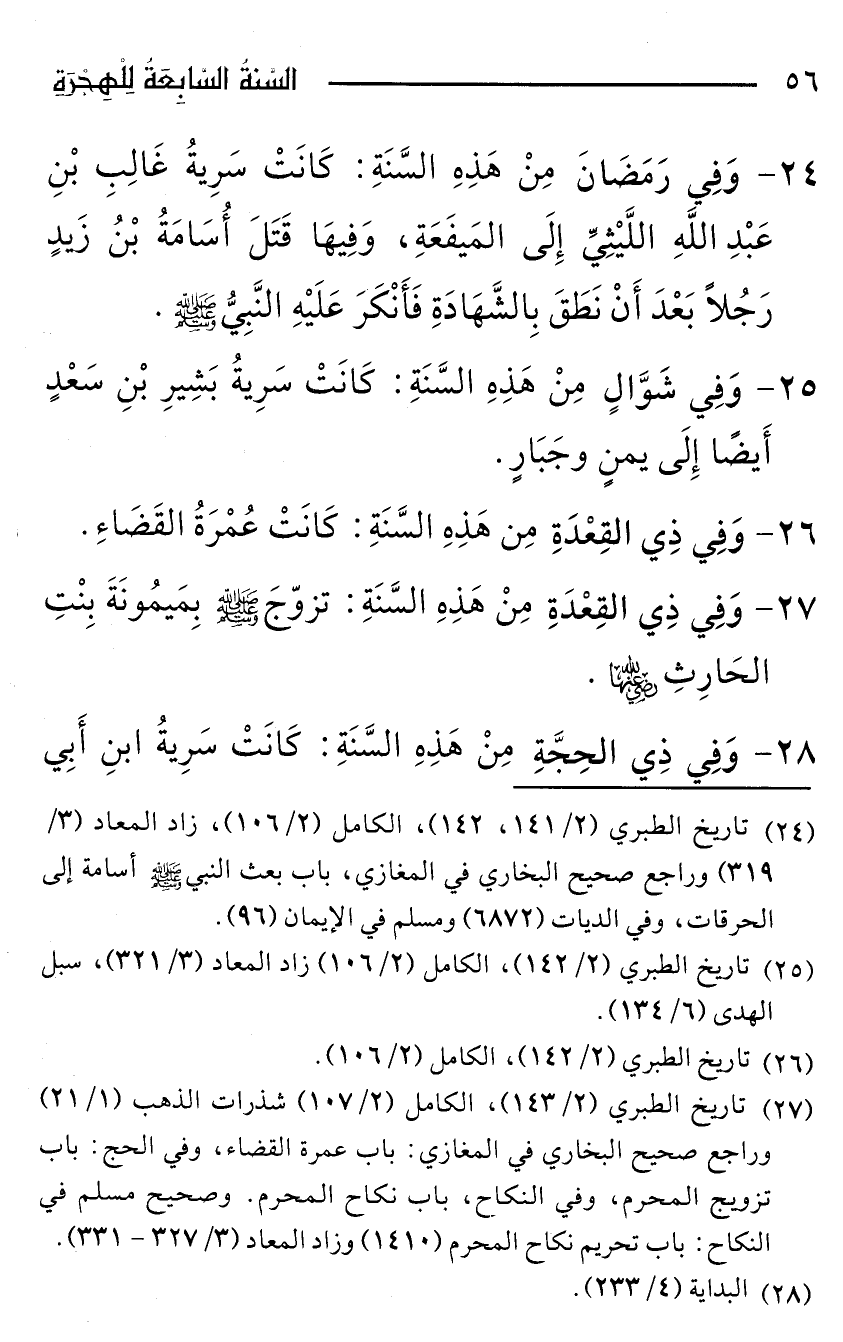 ٥٦ السَّنَةُ السَّابِعَةُ لِلْهِجْرَةِ
٢٤- وَفِي رَمَضَانَ مِنْ هَذِهِ السَّنَةِ: كَانَتْ سَرِيةُ غَالِبِ بْنِ
عَبْدِ اللَّهِ اللَّيْثِيِّ إِلَى المَيفَعَةِ، وَفِيهَا قَتَلَ أُسَامَةُ بْنُ زَيدٍ
رَجُلاً بَعْدَ أَنْ نَطَقَ بِالشَّهَادَةِ فَأَنْكَرَ عَلَيْهِ النَّبِيُّ ﷺ.
٢٥- وَفِي شَوَّالٍ مِنْ هَذِهِ السَّنَةِ: كَانَتْ سَرِيةُ بَشِيرِ بْنِ سَعْدٍ
أَيضًا إِلَى يمنٍ وجَبَارٍ.
٢٦- وَفِي ذِي القِعْدَةِ مِن هَذِهِ السَّنَةِ: كَانَتْ عُمْرَةُ القَضَاءِ.
٢٧- وَفِي ذِي القِعْدَةِ مِنْ هَذِهِ السَّنَةِ: تزوّجَ ﷺ بِمَيمُونَةَ بِنْتِ
الحَارِثِ رضي الله عنها.
٢٨- وَفِي ذِي الحِجَّةِ مِنْ هَذِهِ السَّنَةِ: كَانَتْ سَرِيةُ ابنِ أَبِي
(٢٤) تاريخ الطبري (٢/ ١٤١، ١٤٢)، الكامل (٢/ ١٠٦)، زاد المعاد (٣/
٣١٩) وراجع صحيح البخاري في المغازي، باب بعث النبي ﷺ أسامة إلى
الحرقات، وفي الديات (٦٨٧٢) ومسلم في الإيمان (٩٦).
(٢٥) تاريخ الطبري (٢/ ١٤٢)، الكامل (٢/ ١٠٦) زاد المعاد (٣/ ٣٢١)، سبل
الهدى (٦/ ١٣٤).
(٢٦) تاريخ الطبري (٢/ ١٤٢)، الكامل (٢/ ١٠٦).
(٢٧) تاريخ الطبري (٢/ ١٤٣)، الكامل (٢/ ١٠٧) شذرات الذهب (١/ ٢١)
وراجع صحيح البخاري في المغازي: باب عمرة القضاء، وفي الحج: باب
تزويج المحرم، وفي النكاح، باب نكاح المحرم. وصحيح مسلم في
النكاح: باب تحريم نكاح المحرم (١٤١٠) وزاد المعاد (٣/ ٣٢٧ - ٣٣١).
(٢٨) البداية (٤/ ٢٣٣).